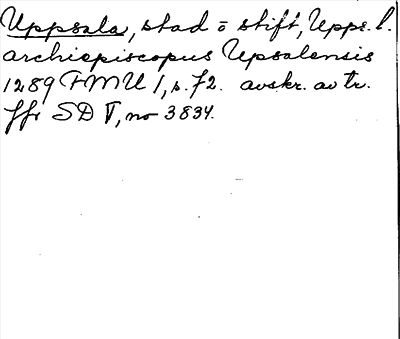 Uppsala, stad o stift, Upps. l.
archiepiscopus Upsalensis
1289 FMU 1, s. 72. avskr. av tr.
ffr SD V, no 3834.